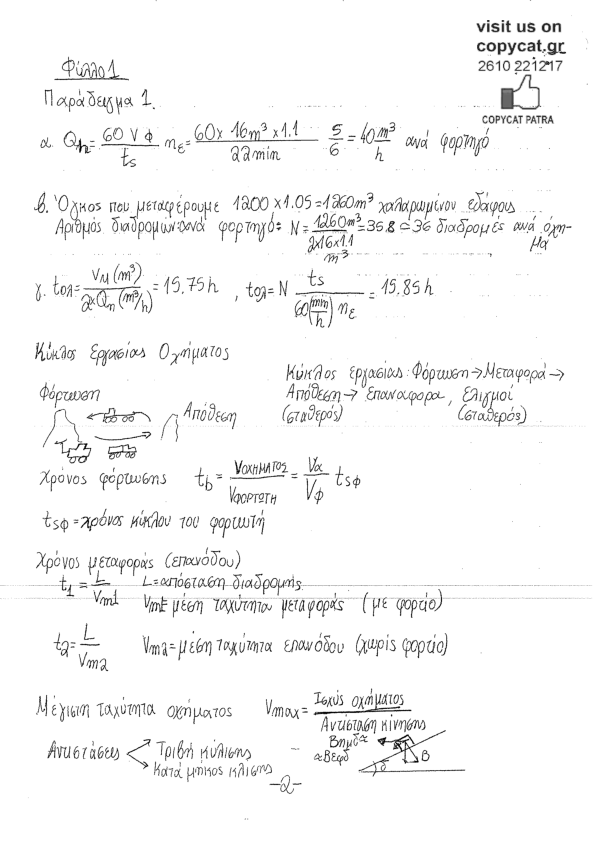 visit us on
copycat.gr
2610 221217
COPYCAT PATRA
Φύλλο 1
Παράδειγμα 1.
α. Qh = 60 V φ / ts nε = 60 x 16m³ x 1.1 / 22min 5/6 = 40 m³/h ανά φορτηγό
β. Όγκος που μεταφέρουμε 1200 x 1.05 = 1260m³ χαλαρωμένου εδάφους
Αριθμός διαδρομών ανά φορτηγό: N = 1260m³ / 2x16x1.1 m³ = 35.8 ≃ 36 διαδρομές ανά όχη-
μα
γ. tολ = VM (m³) / 2*Qη (m³/h) = 15.75h , tολ = N ts / 60 (min/h) nε = 15.85h
Κύκλος εργασίας Οχήματος
Κύκλος εργασίας: Φόρτωση → Μεταφορά →
Απόθεση → επαναφορα, ελιγμοί
(σταθερός) (σταθερός)
Φόρτωση
Απόθεση
Χρόνος φόρτωσης tb = VΟΧΗΜΑΤΟΣ / VΦΟΡΤΩΤΗ = Vα / Vφ tsφ
tsφ = χρόνος κύκλου του φορτωτή
Χρόνος μεταφοράς (επανόδου)
t1 = L / Vm1 L = απόσταση διαδρομής
Vm1 = μέση ταχύτητα μεταφοράς (με φορτίο)
t2 = L / Vm2 Vm2 = μέση ταχύτητα επανόδου (χωρίς φορτίο)
Μέγιστη ταχύτητα οχήματος Vmax = Ισχύς οχήματος / Αντίσταση κίνησης
Αντιστάσεις Τριβή κύλισης
Κατά μήκος κλίσης
Βημδ≈
≈Βεφδ
B
δ
-2-